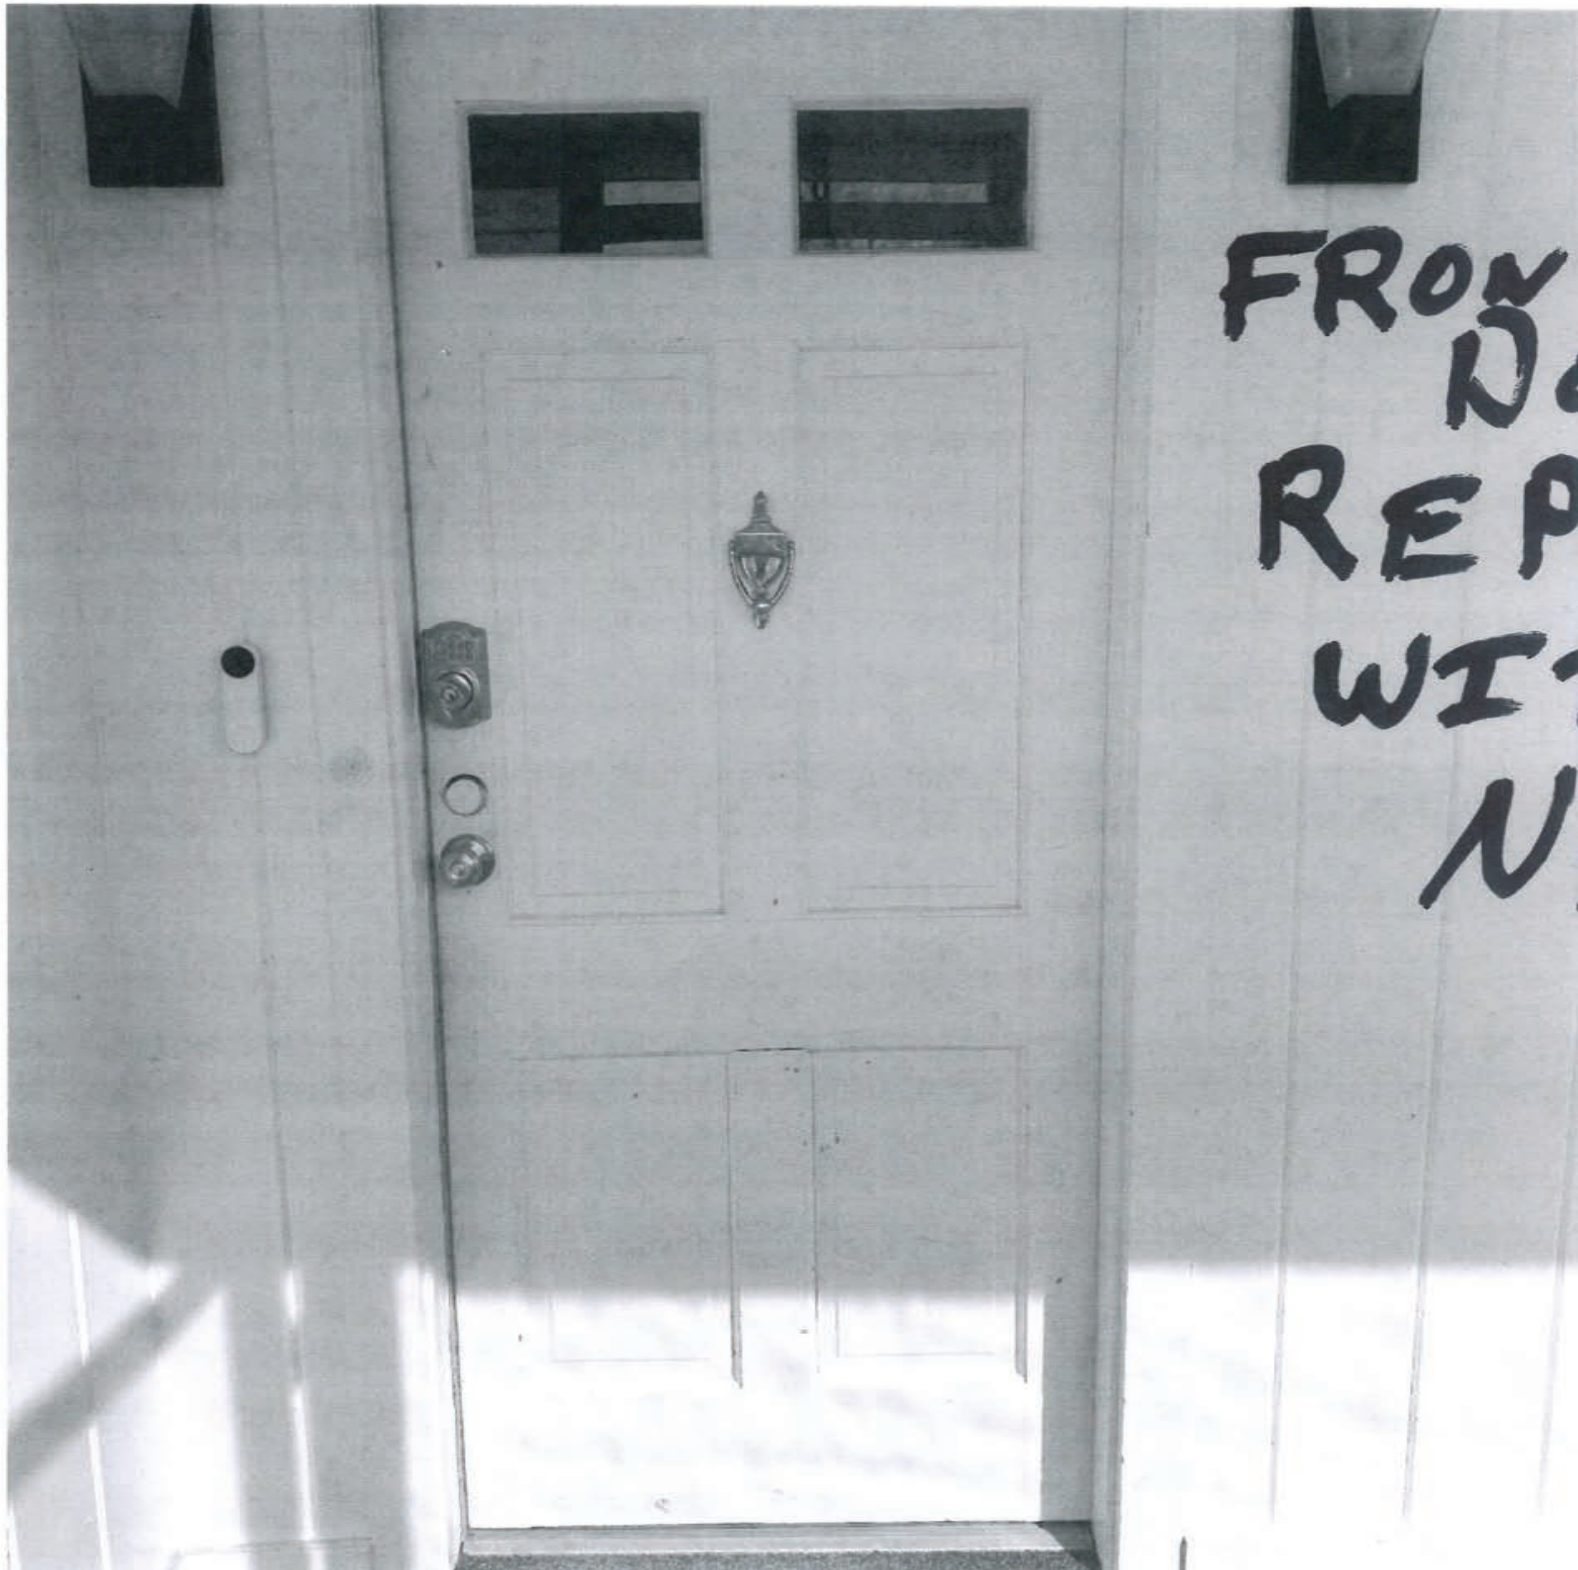 FRON
DO
REP
WIT
N